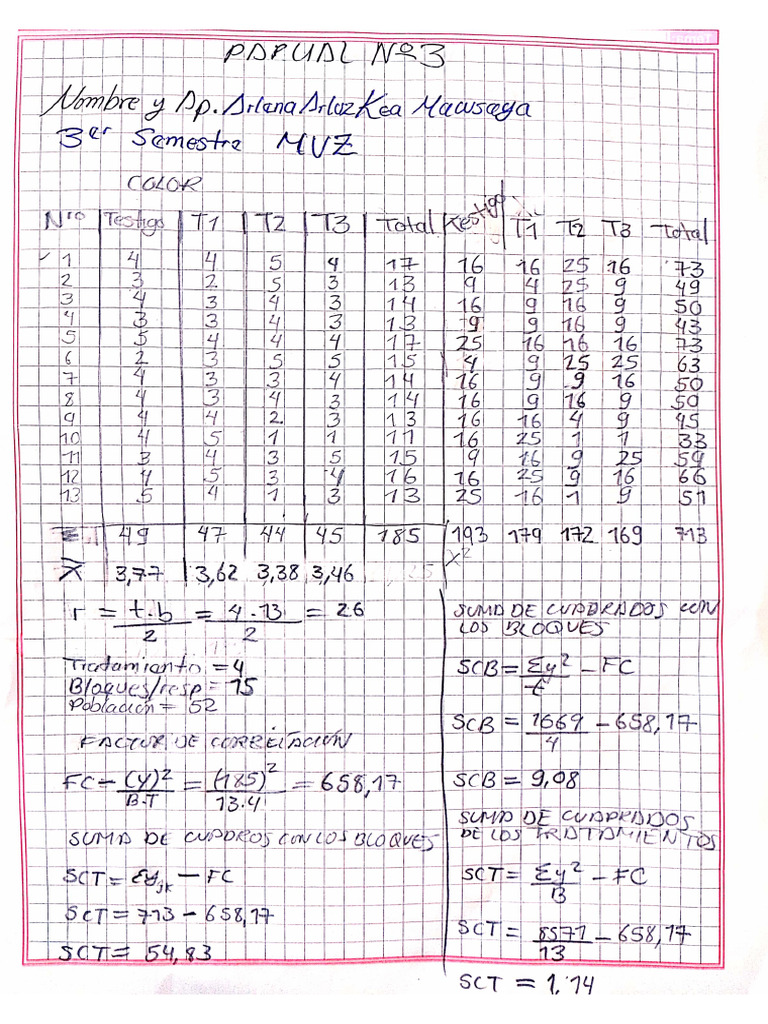 PARCIAL Nº3
Nombre y Ap. Arlena Arloz Kea Macusaya
3er Semestre MVZ
COLOR
Nro Testigo T1 T2 T3 Total Testigo T1 T2 T3 Total
1 4 4 5 4 17 16 16 25 16 73
2 3 2 5 3 13 9 4 25 9 49
3 4 3 4 3 14 16 9 16 9 50
4 3 3 4 3 13 9 9 16 9 43
5 5 4 4 4 17 25 16 16 16 73
6 2 3 5 5 15 4 9 25 25 63
7 4 3 3 4 14 16 9 9 16 50
8 4 3 4 3 14 16 9 16 9 50
9 4 4 2 3 13 16 16 4 9 45
10 4 5 1 1 11 16 25 1 1 33
11 3 4 3 5 15 9 16 9 25 59
12 4 5 3 4 16 16 25 9 16 66
13 5 4 1 3 13 25 16 1 9 51
Σ 49 47 44 45 185 193 179 172 169 713
x̄ 3,77 3,62 3,38 3,46 x²
r = t.b/2 = 4.13/2 = 26
Tratamiento = 4
Bloques/resp = 15
Población = 52
FACTOR DE CORRECIACIÓN
FC = (Y)²/B.T = (185)²/13.4 = 658,17
SUMA DE CUADROS CON LOS BLOQUES
SCT = Σyjk - FC
SCT = 713 - 658,17
SCT = 54,83
SUMA DE CUADRADOS CON
LOS BLOQUES
SCB = Σy²/t - FC
SCB = 1669/4 - 658,17
SCB = 9,08
SUMA DE CUADRADOS
DE LOS TRATAMIENTOS
SCT = Σy²/B - FC
SCT = 8571/13 - 658,17
SCT = 1,14